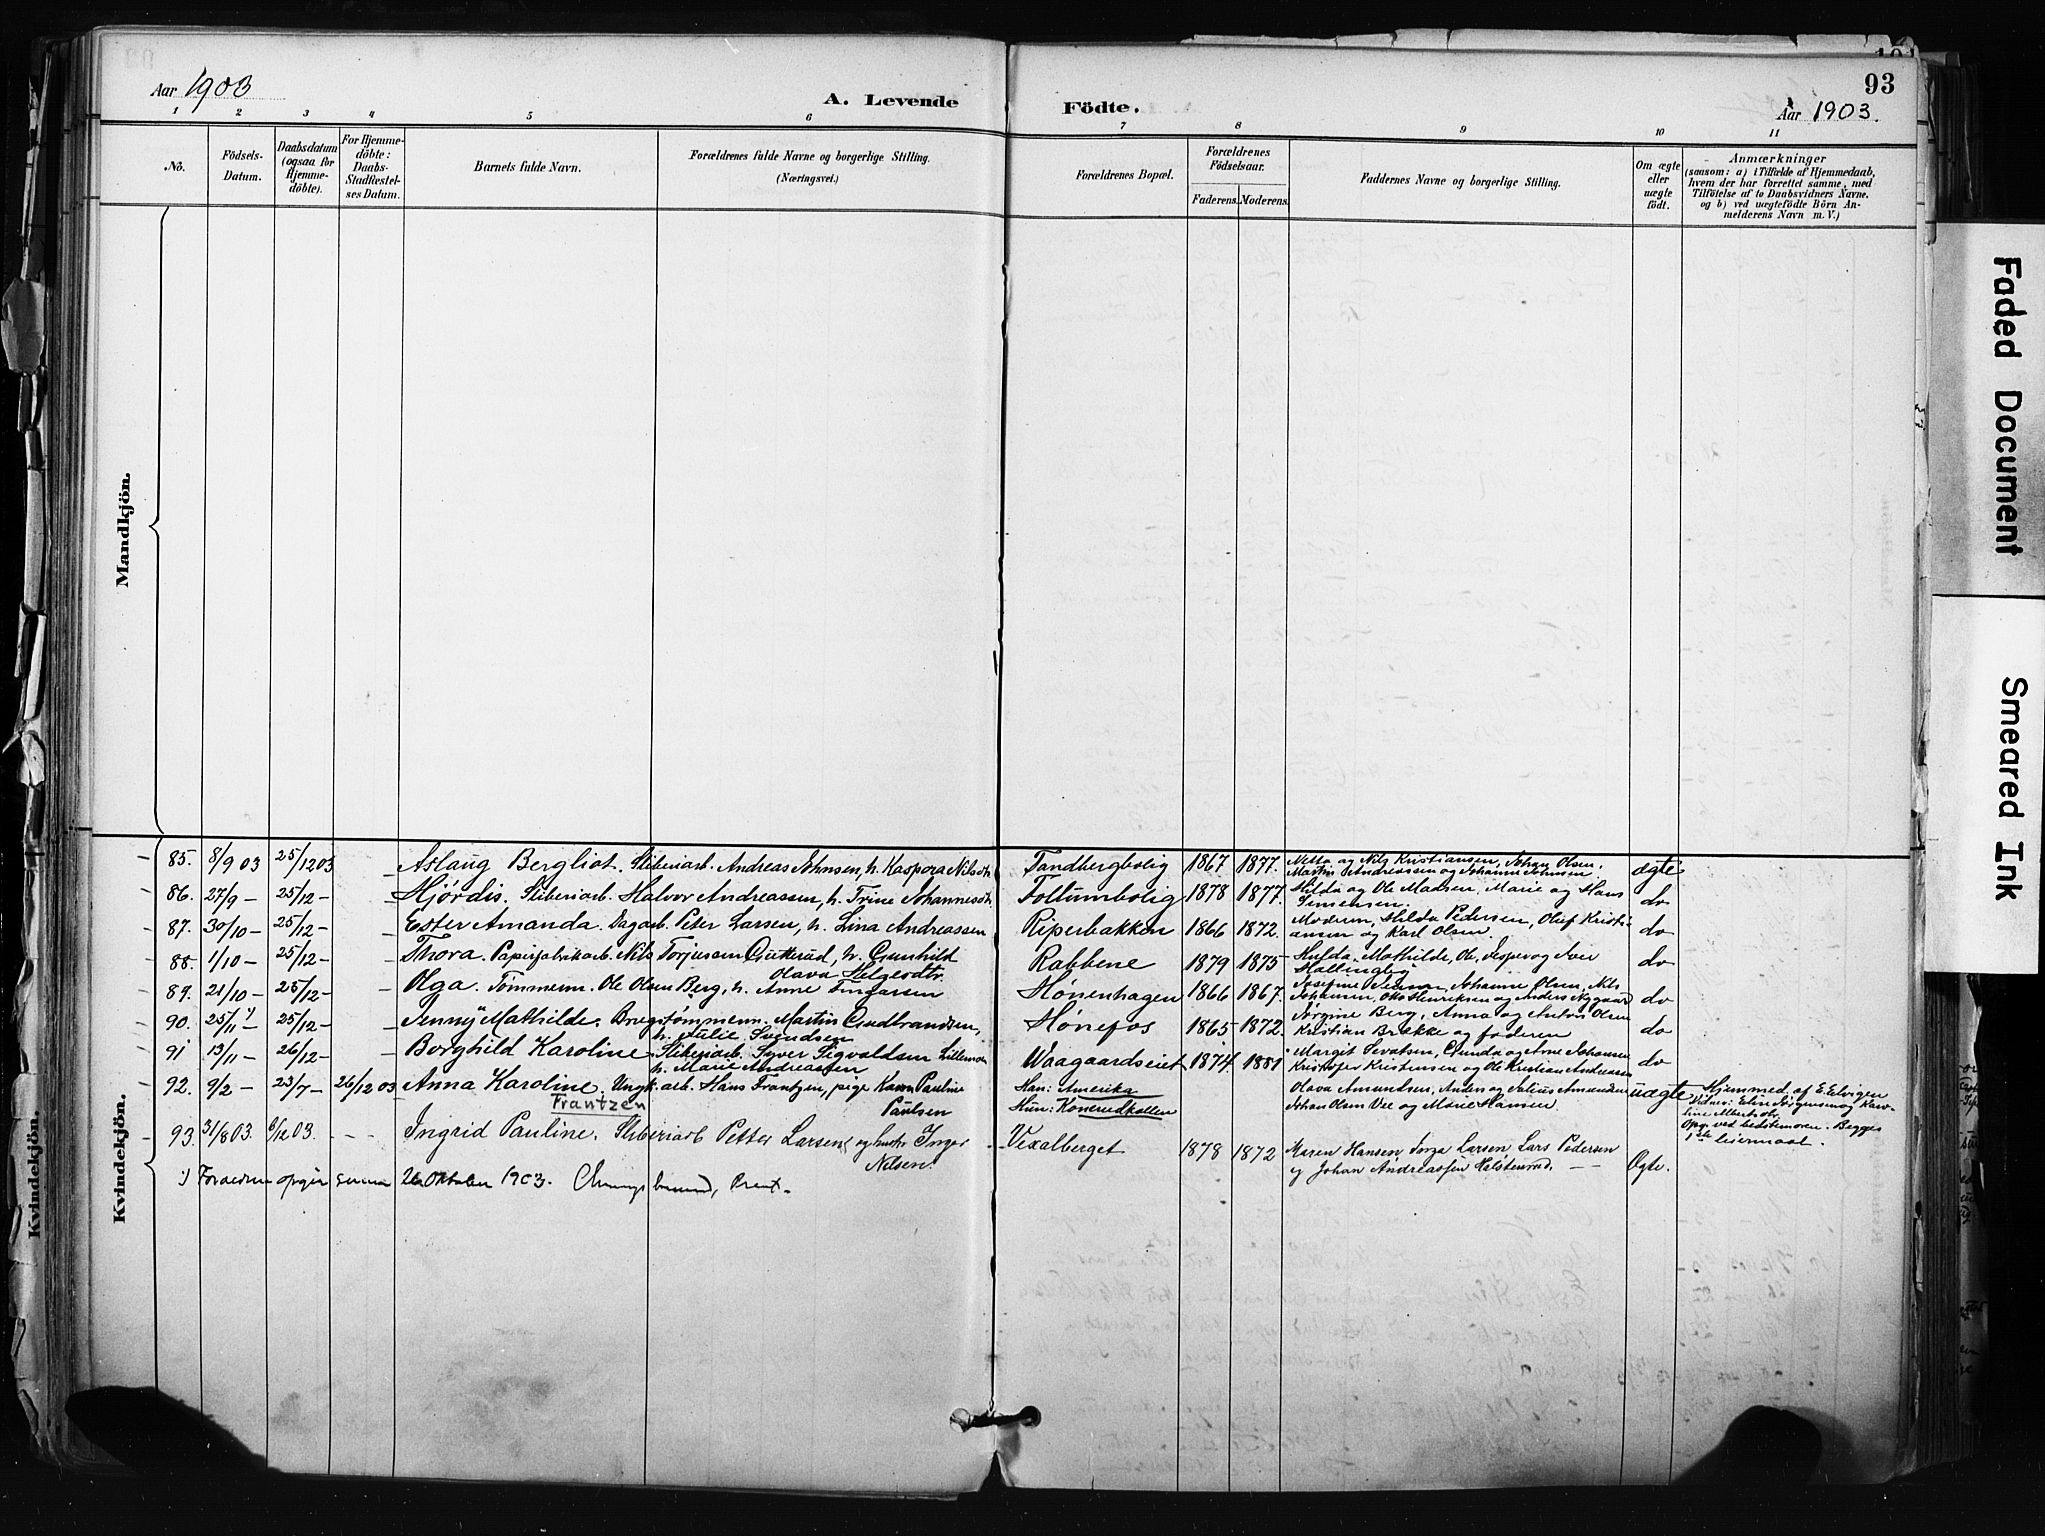 Aar 1903
A. Levende
Födte.
93
Aar 1903.
1 2 3 4 5 6 7 8 9 10 11
No.
Födsels-Datum.
Daabsdatum (ogsaa for Hjemme-döbte).
For Hjemme-döbte: Daabs-Stadfæstel-ses Datum.
Barnets fulde Navn.
Forældrenes fulde Navne og borgerlige Stilling.
(Næringsvei.)
Forældrenes Bopæl.
Forældrenes Födselsaar.
Faderens. Moderens.
Faddernes Navne og borgerlige Stilling.
Om ægte eller uægte födt.
Anmærkninger
(saasom: a) i Tilfælde af Hjemmedaab,
hvem der har forrettet samme, med
Tilföielse af to Daabsvidners Navne,
og b) ved uægtefödte Börn An-
melderens Navn m. V.)
Mandkjön.
Kvindekjön.
Kvindekjön.
85. 8/9 03 25/12 03 - Aslaug Bergliot. Sliberiarb. Andreas Johnsen, h. Kaspora Nilsdtr. Tandbergbolig 1867 1877. Netta og Nils Kristiansen, Johan Olsen, ægte
Martin Andreassen og Johanne Johnsen
86. 27/9 - 25/12 - - Hjördis. Sliberiarb. Halvor Andreassen, h. Trine Johannesdtr. Follumbolig 1878 1877. Hilda og Ole Madsen, Marie og Hans do
Simensen.
87. 30/10 - 25/12 - - Ester Amanda. Dagarb. Peter Larsen, h. Lina Andreassen Riperbakken 1866 1872. Moderen, Hilda Pedersen, Oluf Kristi-
ansen og Karl Olsen. do
88. 1/10 - 25/12 - - Thora. Papirfabrikarb. Nils Torjusen Gutterud, h. Gunhild
Olava Helgesdtr. Rabbene 1879 1875 Hulda, Mathilde, Ole, Jesper og Iver
Hallingby do
89. 21/10 - 25/12 - - Olga. Tömmerm. Ole Olsen Berg, h. Anne Hönenhagen 1866 1867. Josefine Jensen, Johanne Olsen, Nils
Johansen, Otto Henriksen og Anders Nygaard do
90. 25/11 1) 25/12 - - Jenny Mathilde. Brugstömmerm. Martin Gudbrandsen,
h. Julie Svendsen Hönefos 1865 1872. Jörgine Berg, Anna og Anton Olsen
Kristian Brække og faderen do
91 13/11 - 26/12 - - Borghild Karoline Sliberiarb. Syver Sigvaldsen Lillemoen
h. Marie Andreassen Waagaardseiet 1874 1881 Margit Sevatsen, Gunda og Arne Johansen
Kristofer Kristensen og Ole Kristian Andreassen do
92. 9/2 - 23/7 - 26/12 03 Anna Karoline. Ungk. arb. Hans Frantzen, pige Karen Pauline
Frantzen
Paulsen
Han: Amerika
Hun: Konerudkollen
Olava Amundsen, Anders og Julius Amundsen
Johan Olsen Vee og Marie Hansen uægte
Hjemmed. af E. Elvigen
Opg. ved bedstemoren. Begges
1ste leiermaal.
93. 31/8 03. 6/12 03. - - - Ingrid Pauline. Sliberiarb Petter Larsen og hustr. Inger
Nilsen. Vexalberget 1878 1872 Maren Hansen Torga Larsen Lars Pedersen
og Johan Andreassen - - Ægte.
1) Foraeldrene opgir senere 26 Oktober 1903.
Faded Document
Smeared Ink